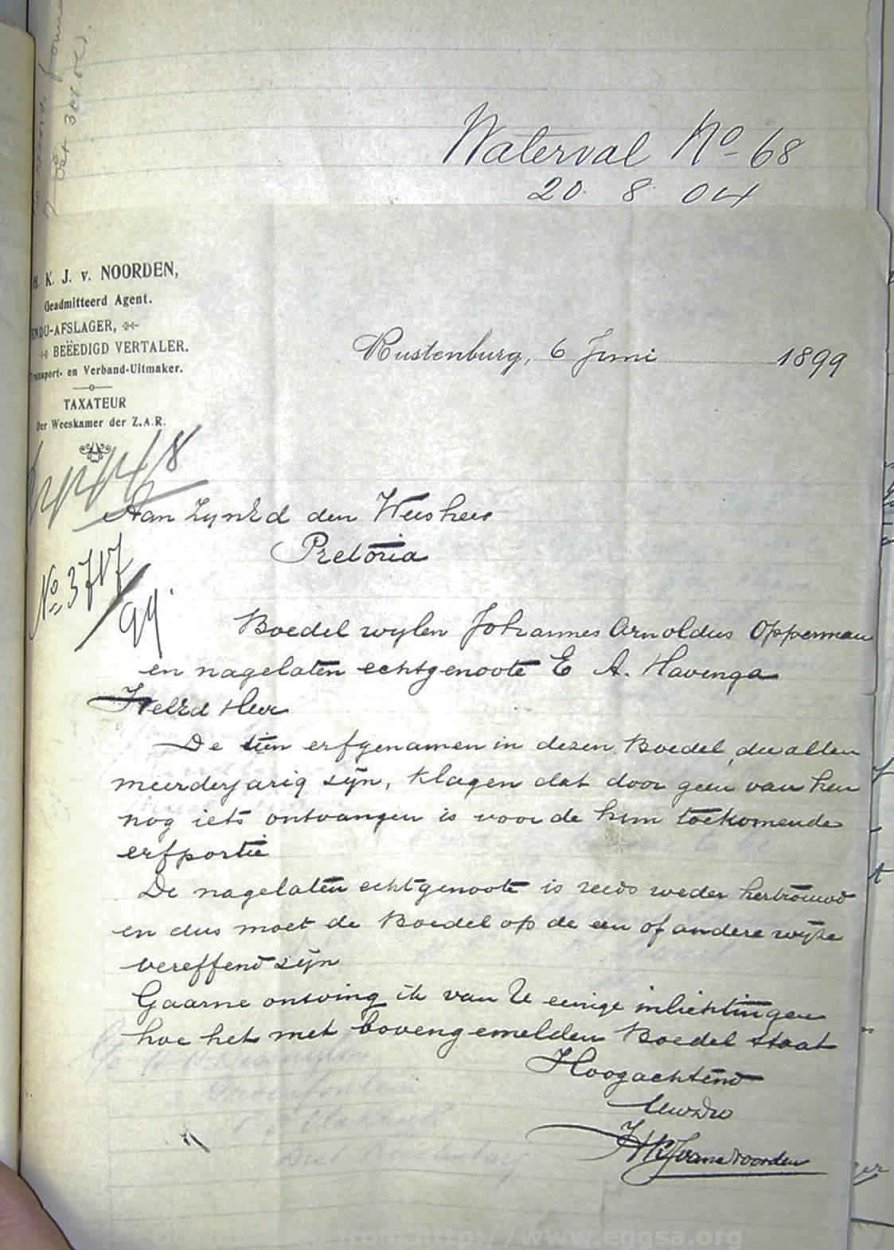 Waterval No 68
20. 8. 04
K. J. v. NOORDEN,
Geadmitteerd Agent.
VENDU-AFSLAGER,
BEËEDIGD VERTALER.
Transport- en Verband-Uitmaker.
TAXATEUR
der Weeskamer der Z.A.R.
Rustenburg, 6 Juni 1899
Aan ZynEd den Weesheer
Pretoria
No 3717/99.
Boedel wylen Johannes Arnoldus Opperman
en nagelaten echtgenoote E A. Havenga
WelEd Heer
De tien erfgenamen in dezen Boedel, die allen
meerderjarig zyn, klagen dat door geen van hen
nog iets ontvangen is voor de hun toekomende
erfportie
De nagelaten echtgenoote is reeds weder hertrouwd
en dus moet de Boedel op de een of andere wyze
vereffend zyn
Gaarne ontving ik van U eenige inlichtingen
hoe het met bovengemelden Boedel staat
Hoogachtend
UwDw
HKJvanNoorden
http://www.eggsa.org